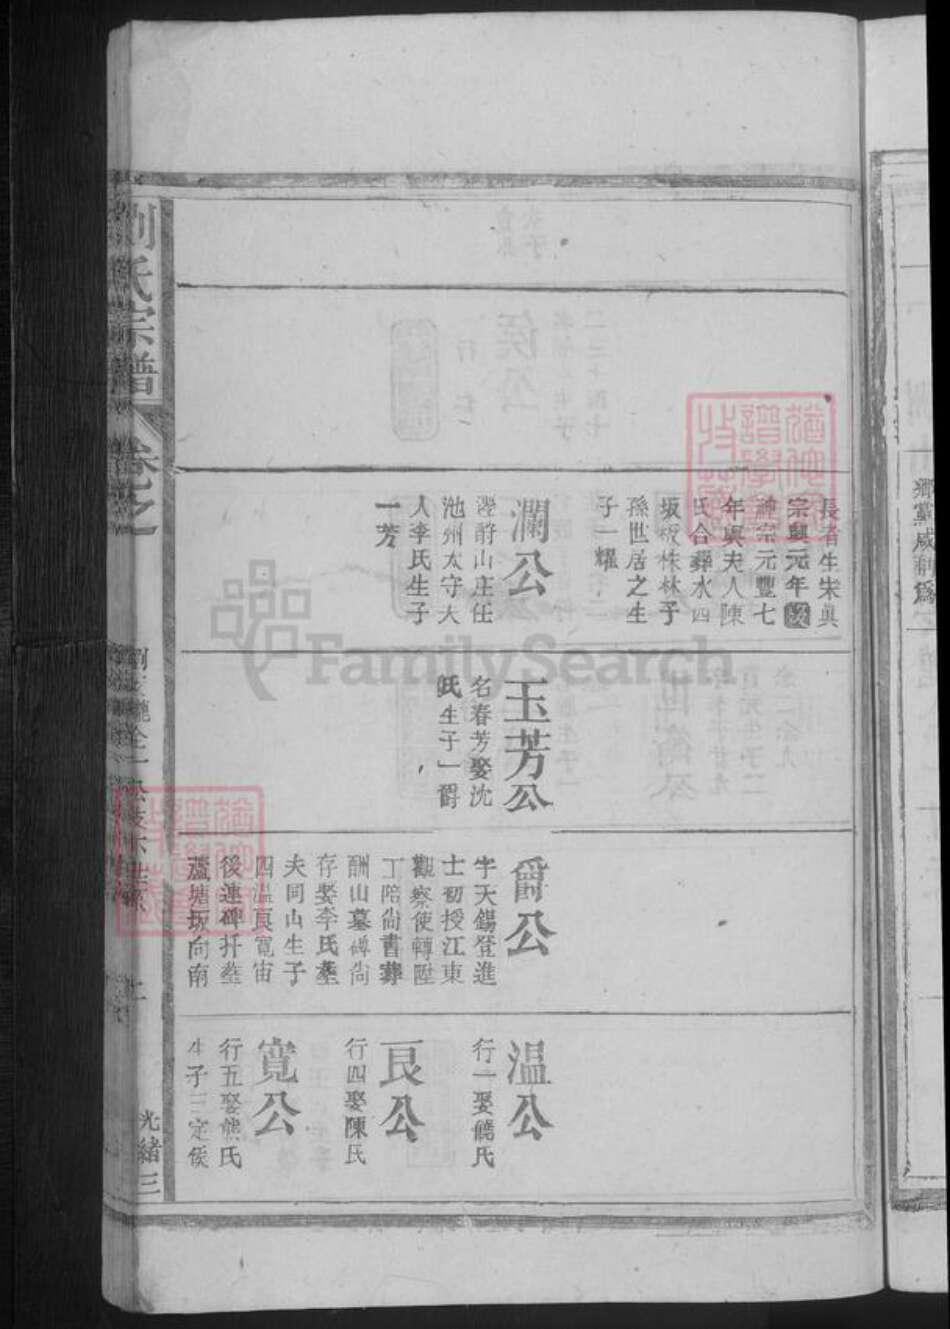 長者生宋眞
宗興元年歿
神宗元豐七
年與夫人陳
氏合葬水四
坂板株林子
孫世居之生
子一耀
瀾公
諡爵山庄任
池州太守夫
人李氏生子
一芳
玉芳公
名春芳娶沈
氏生子一爵
爵公
字天錫登進
士初授江東
觀察使轉陞
丁陪尙書葬
酬山墓碑尙
存娶李氏墓
夫同山生子
四溫良寬宙
後連碑扦葬
蘆塘坂向南
溫公
行一娶饒氏
良公
行四娶陳氏
寬公
行五娶熊氏
生子三定侯
劉氏宗譜
卷之
光緒三
鄉黨咸
FamilySearch